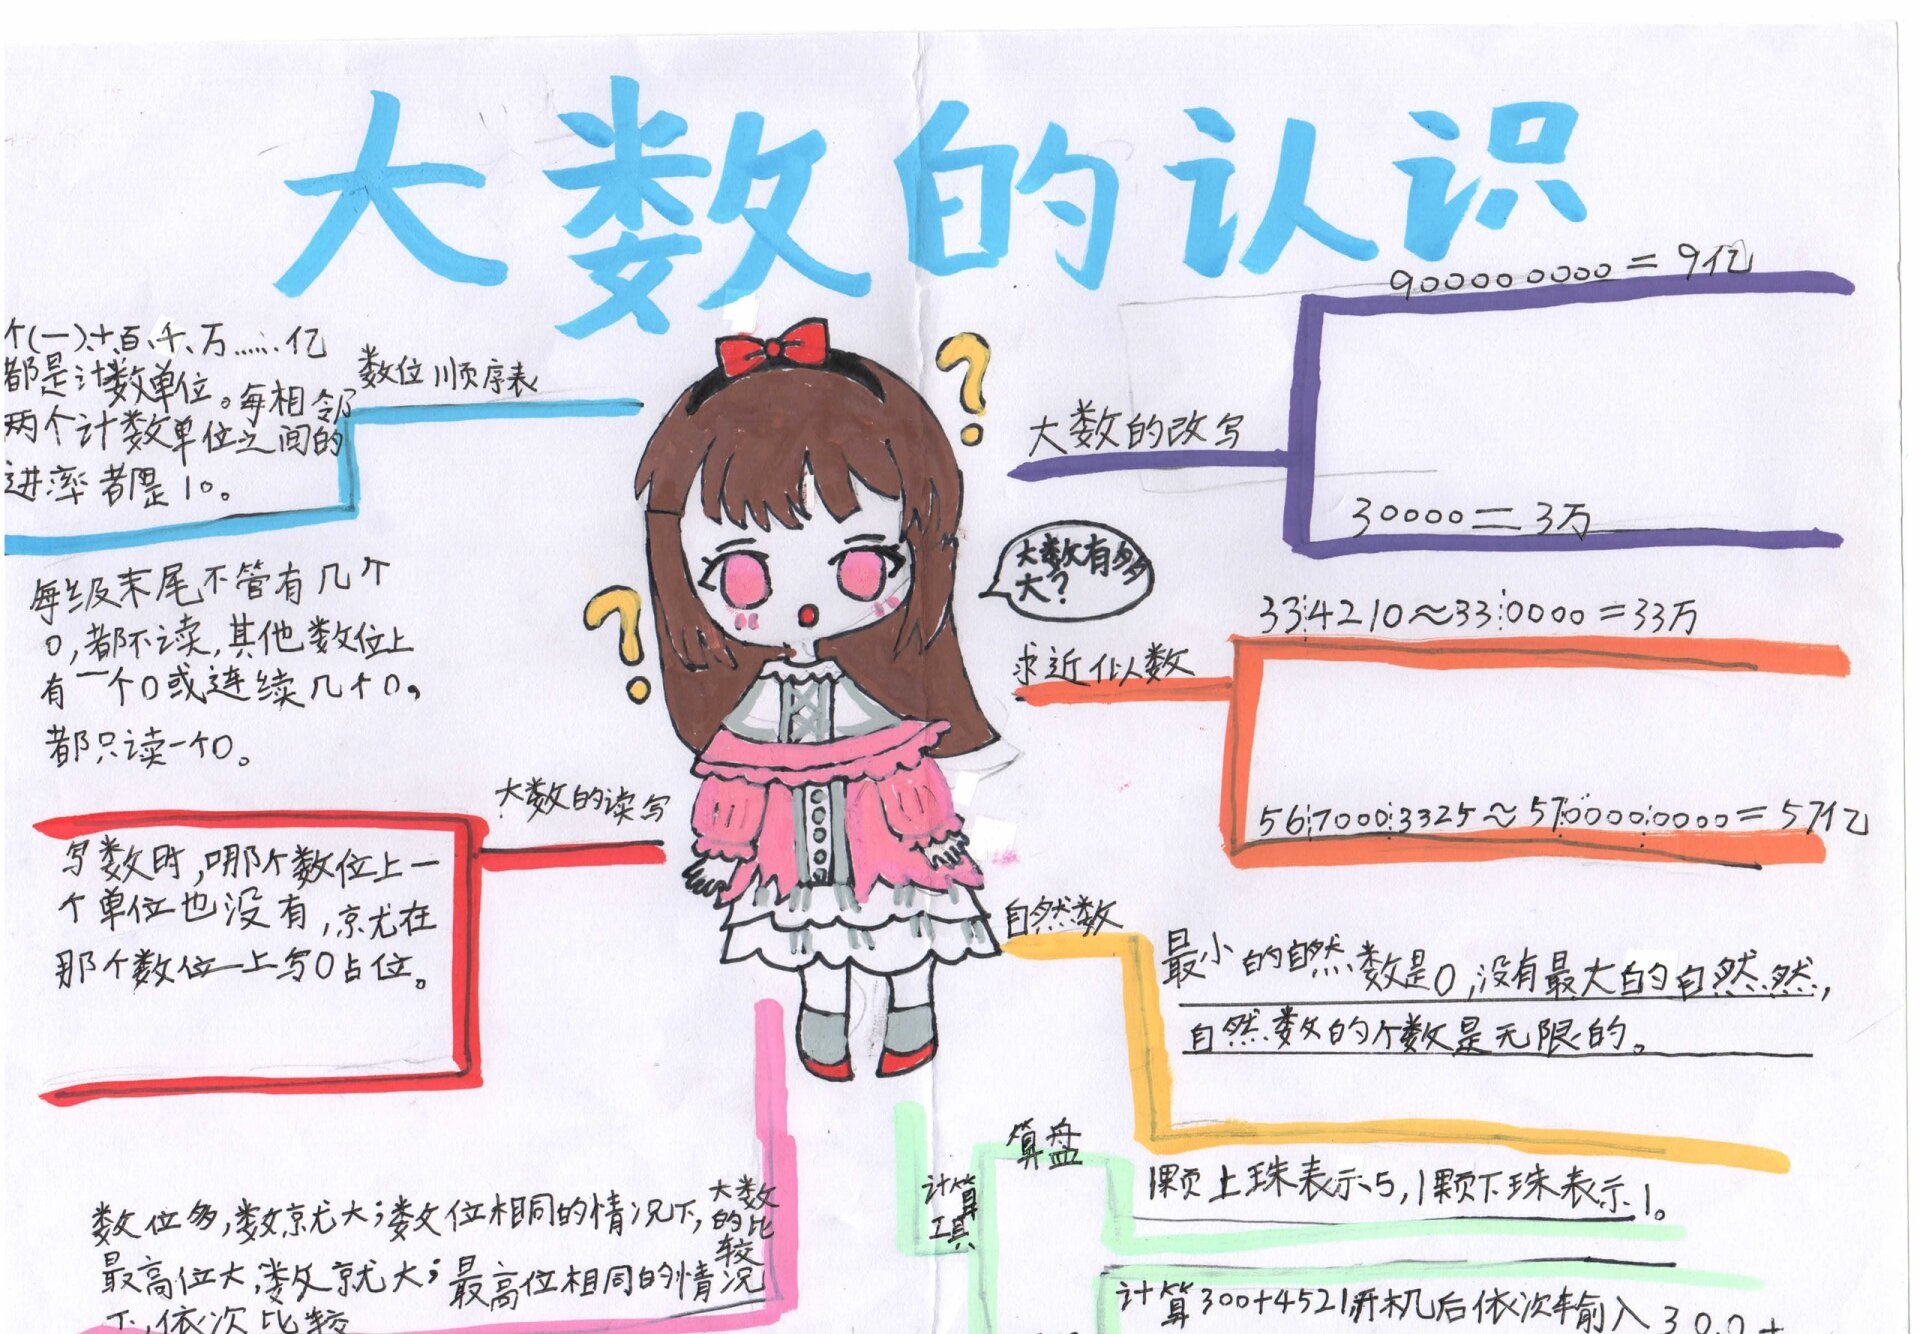 大数的认识
个(一)、十、百、千、万……亿
都是计数单位。每相邻
两个计数单位之间的
进率都是10。
数位顺序表
每级末尾不管有几个
0,都不读,其他数位上
有一个0或连续几个0,
都只读一个0。
大数的读写
写数时,哪个数位上一
个单位也没有,就在
那个数位上写0占位。
数位多,数就大;数位相同的情况下,
最高位大,数就大;最高位相同的情况
下,依次比较
大数
的比
较
大数有多
大?
大数的改写
900000000=9亿
30000=3万
求近似数
33┊4210≈33┊0000=33万
56┊7000┊3325≈57┊0000┊0000=57亿
自然数
最小的自然数是0,没有最大的自然然,
自然数的个数是无限的。
计算
工具
算盘
1颗上珠表示5,1颗下珠表示1。
计算300+4521,开机后依次输入300+